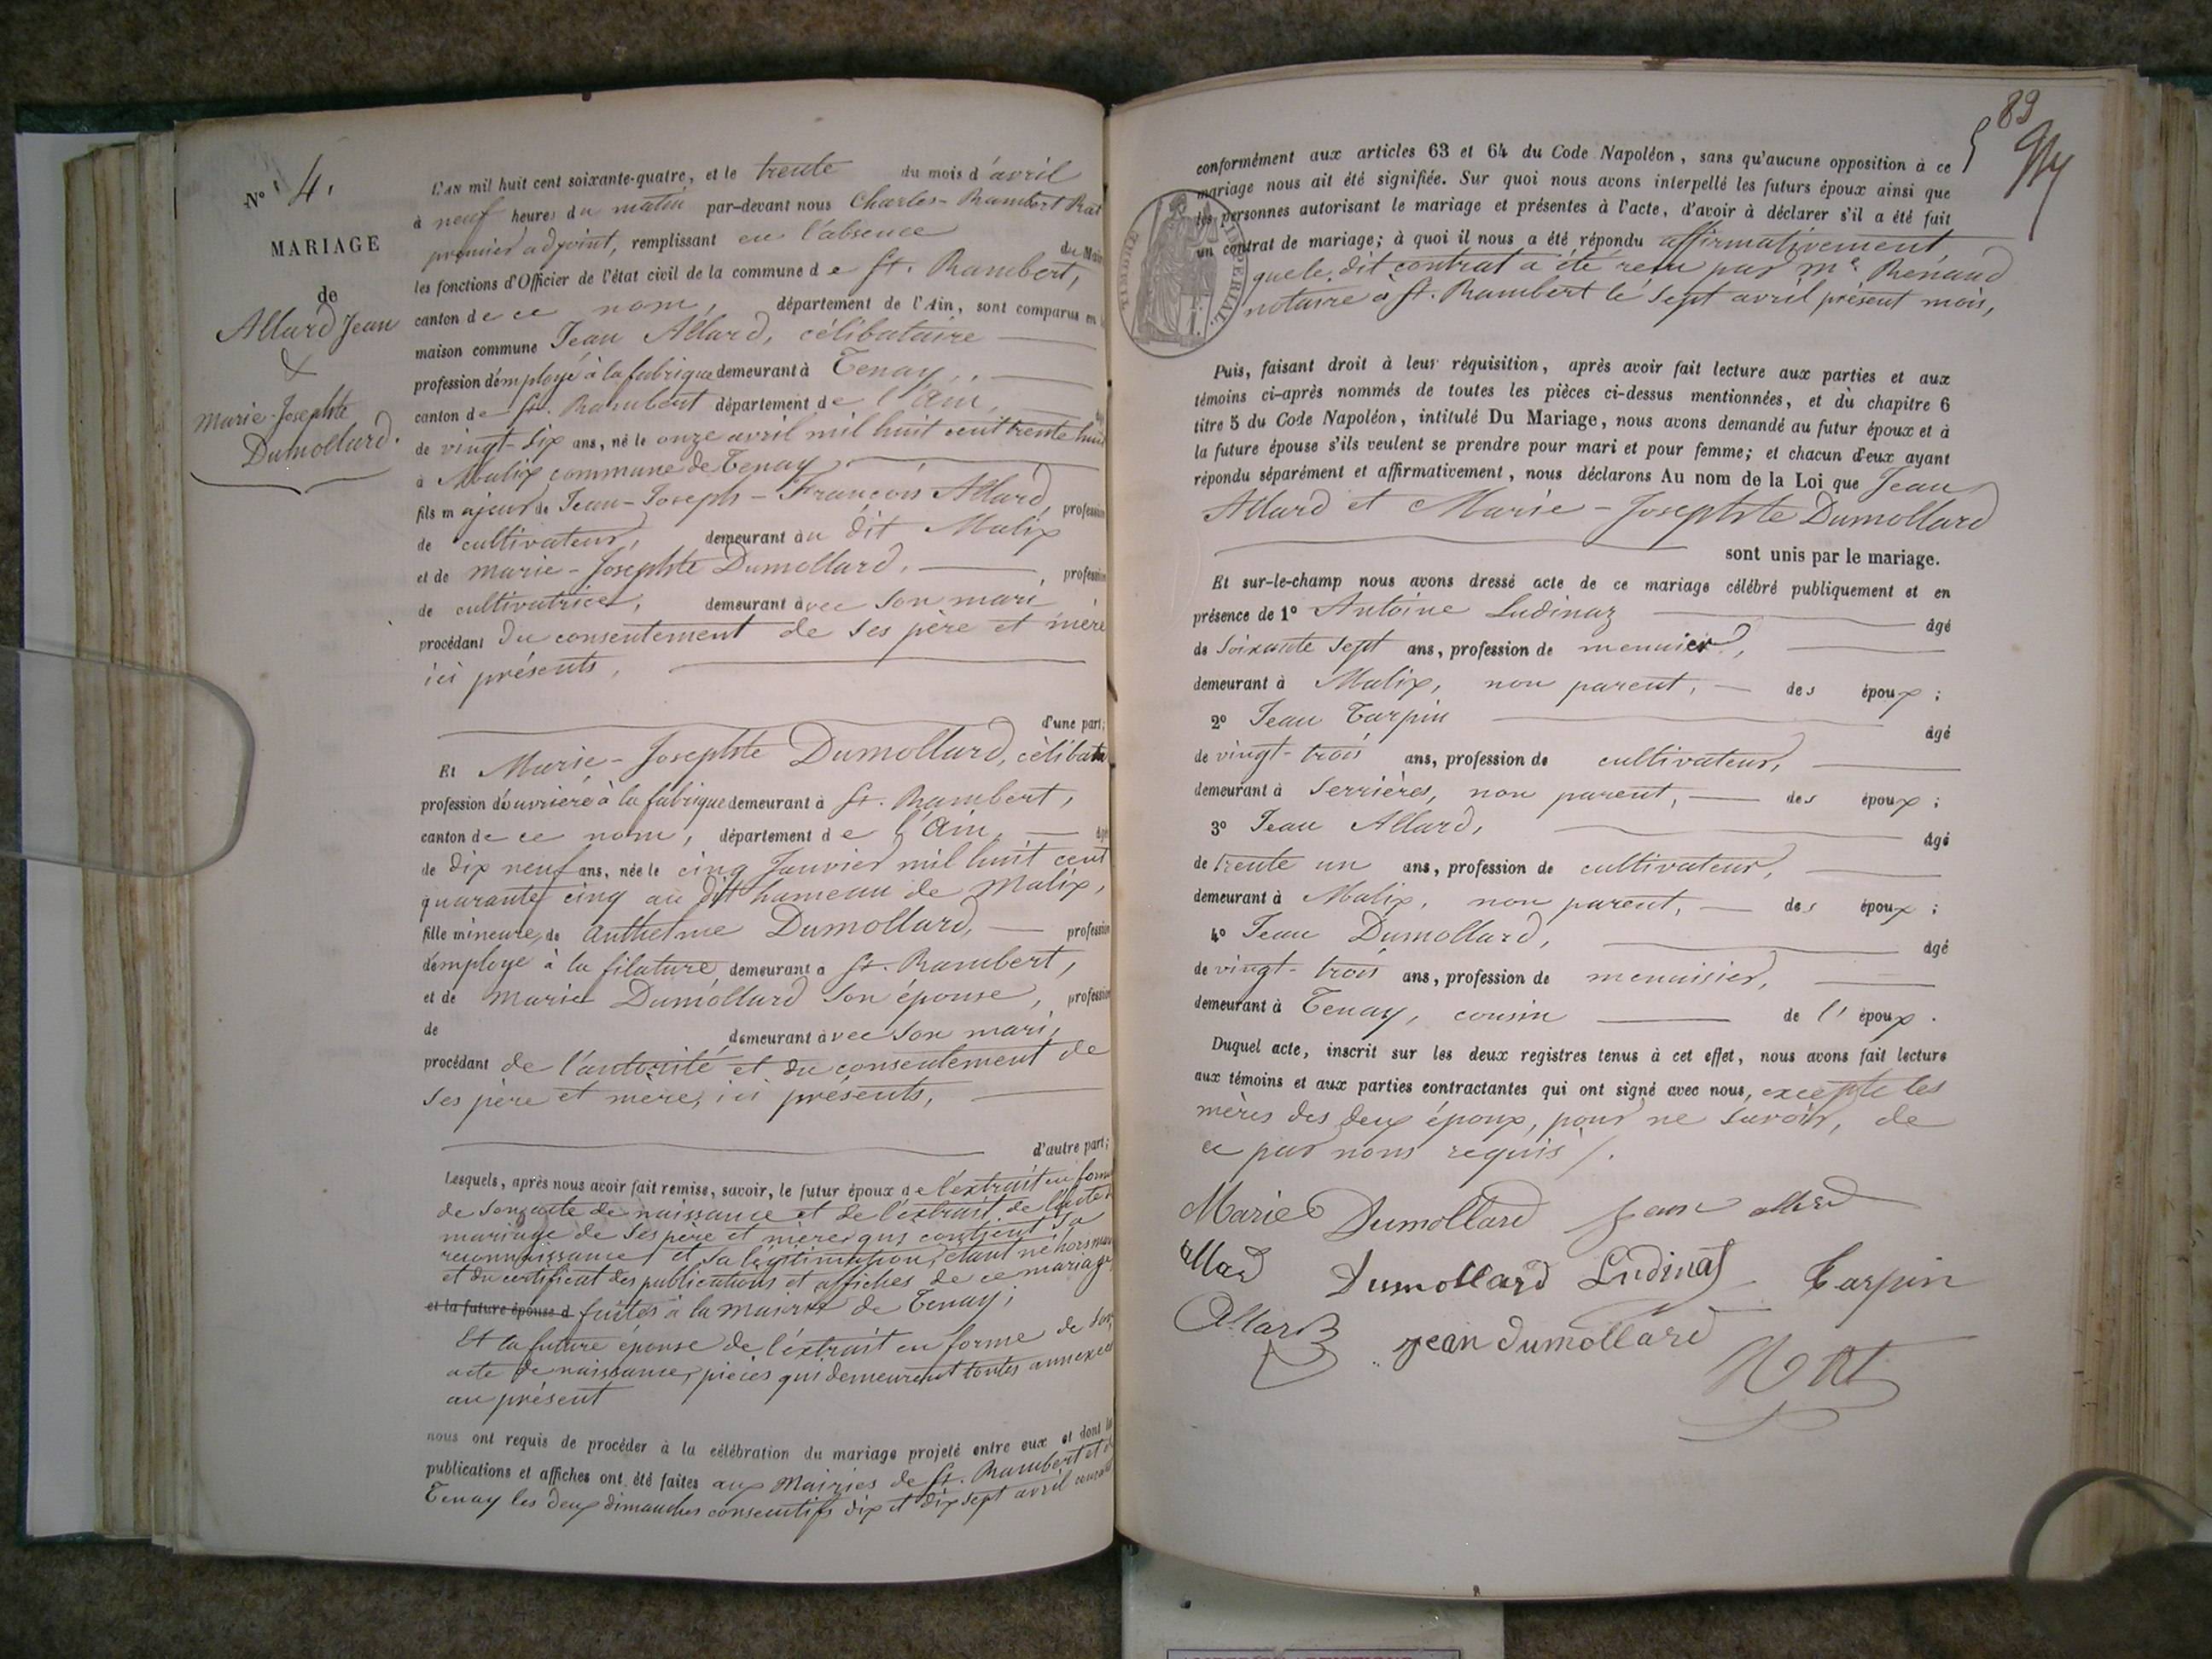 N° 4.
MARIAGE
de
Allard Jean
&
Marie-Josephte
Dumollard.
L'AN mil huit cent soixante-quatre, et le trente du mois d'avril
à neuf heures du matin par-devant nous Charles-Rambert Rat
premier adjoint, remplissant en l'absence du Maire
les fonctions d'Officier de l'état civil de la commune de St. Rambert,
canton de ce nom, département de l'Ain, sont comparus en la
maison commune Jean Allard, célibataire
profession d'employé à la fabrique demeurant à Tenay,
canton de St. Rambert département de l'Ain,
de vingt-six ans, né le onze avril mil huit cent trente huit
à Malix commune de Tenay
fils majeur de Jean-Joseph-François Allard, profession
de cultivateur, demeurant au dit Malix
et de Marie-Josephte Dumollard, profession
de cultivatrice, demeurant avec son mari
procédant du consentement de ses père et mère
ici présents,
d'une part;
Et Marie-Josephte Dumollard, céliba
profession d'ouvrière à la fabrique demeurant à St. Rambert,
canton de ce nom, département de l'Ain, âgée
de dix neuf ans, née le cinq Janvier mil huit cent
quarante cinq au dit hameau de Malix,
fille mineure de Anthelme Dumollard, profession
d'employé à la filature demeurant à St. Rambert,
et de Marie Dumollard son épouse, profession
de demeurant avec son mari,
procédant de l'autorité et du consentement de
ses père et mère, ici présents,
d'autre part;
Lesquels, après nous avoir fait remise, savoir, le futur époux de l'extrait en forme
de son acte de naissance et de l'extrait de l'acte de
mariage de ses père et mère qui contient sa
reconnaissance et sa légitimation, étant né hors mariage
et du certificat des publications et affiches de ce mariage
et la future épouse d faites à la mairie de Tenay;
Et la future épouse de l'extrait en forme de son
acte de naissance, pièces qui demeurent toutes annexées
au présent
nous ont requis de procéder à la célébration du mariage projeté entre eux et dont les
publications et affiches ont été faites aux Mairies de St. Rambert et de
Tenay les deux dimanches consécutifs dix et dix sept avril courant
89
conformément aux articles 63 et 64 du Code Napoléon, sans qu'aucune opposition à ce
mariage nous ait été signifiée. Sur quoi nous avons interpellé les futurs époux ainsi que
les personnes autorisant le mariage et présentes à l'acte, d'avoir à déclarer s'il a été fait
un contrat de mariage; à quoi il nous a été répondu affirmativement
que le dit contrat a été reçu par Me Renaud
notaire à St. Rambert le sept avril présent mois,
TIMBRE IMPERIAL.
Puis, faisant droit à leur réquisition, après avoir fait lecture aux parties et aux
témoins ci-après nommés de toutes les pièces ci-dessus mentionnées, et du chapitre 6
titre 5 du Code Napoléon, intitulé Du Mariage, nous avons demandé au futur époux et à
la future épouse s'ils veulent se prendre pour mari et pour femme; et chacun d'eux ayant
répondu séparément et affirmativement, nous déclarons Au nom de la Loi que Jean
Allard et Marie-Josephte Dumollard
sont unis par le mariage.
Et sur-le-champ nous avons dressé acte de ce mariage célébré publiquement et en
présence de 1° Antoine Ludinaz âgé
de soixante sept ans, profession de meunier,
demeurant à Malix, non parent, des époux;
2° Jean Tarpin âgé
de vingt-trois ans, profession de cultivateur,
demeurant à Serrières, non parent, des époux;
3° Jean Allard, âgé
de trente un ans, profession de cultivateur,
demeurant à Malix, non parent, des époux;
4° Jean Dumollard, âgé
de vingt-trois ans, profession de menuisier,
demeurant à Tenay, cousin de l'époux.
Duquel acte, inscrit sur les deux registres tenus à cet effet, nous avons fait lecture
aux témoins et aux parties contractantes qui ont signé avec nous, excepté les
mères des deux époux, pour ne savoir, de
ce par nous requis /.
Marie Dumollard Jean allard
allard Dumollard Ludinaz Tarpin
Allard jean dumollard
Rat